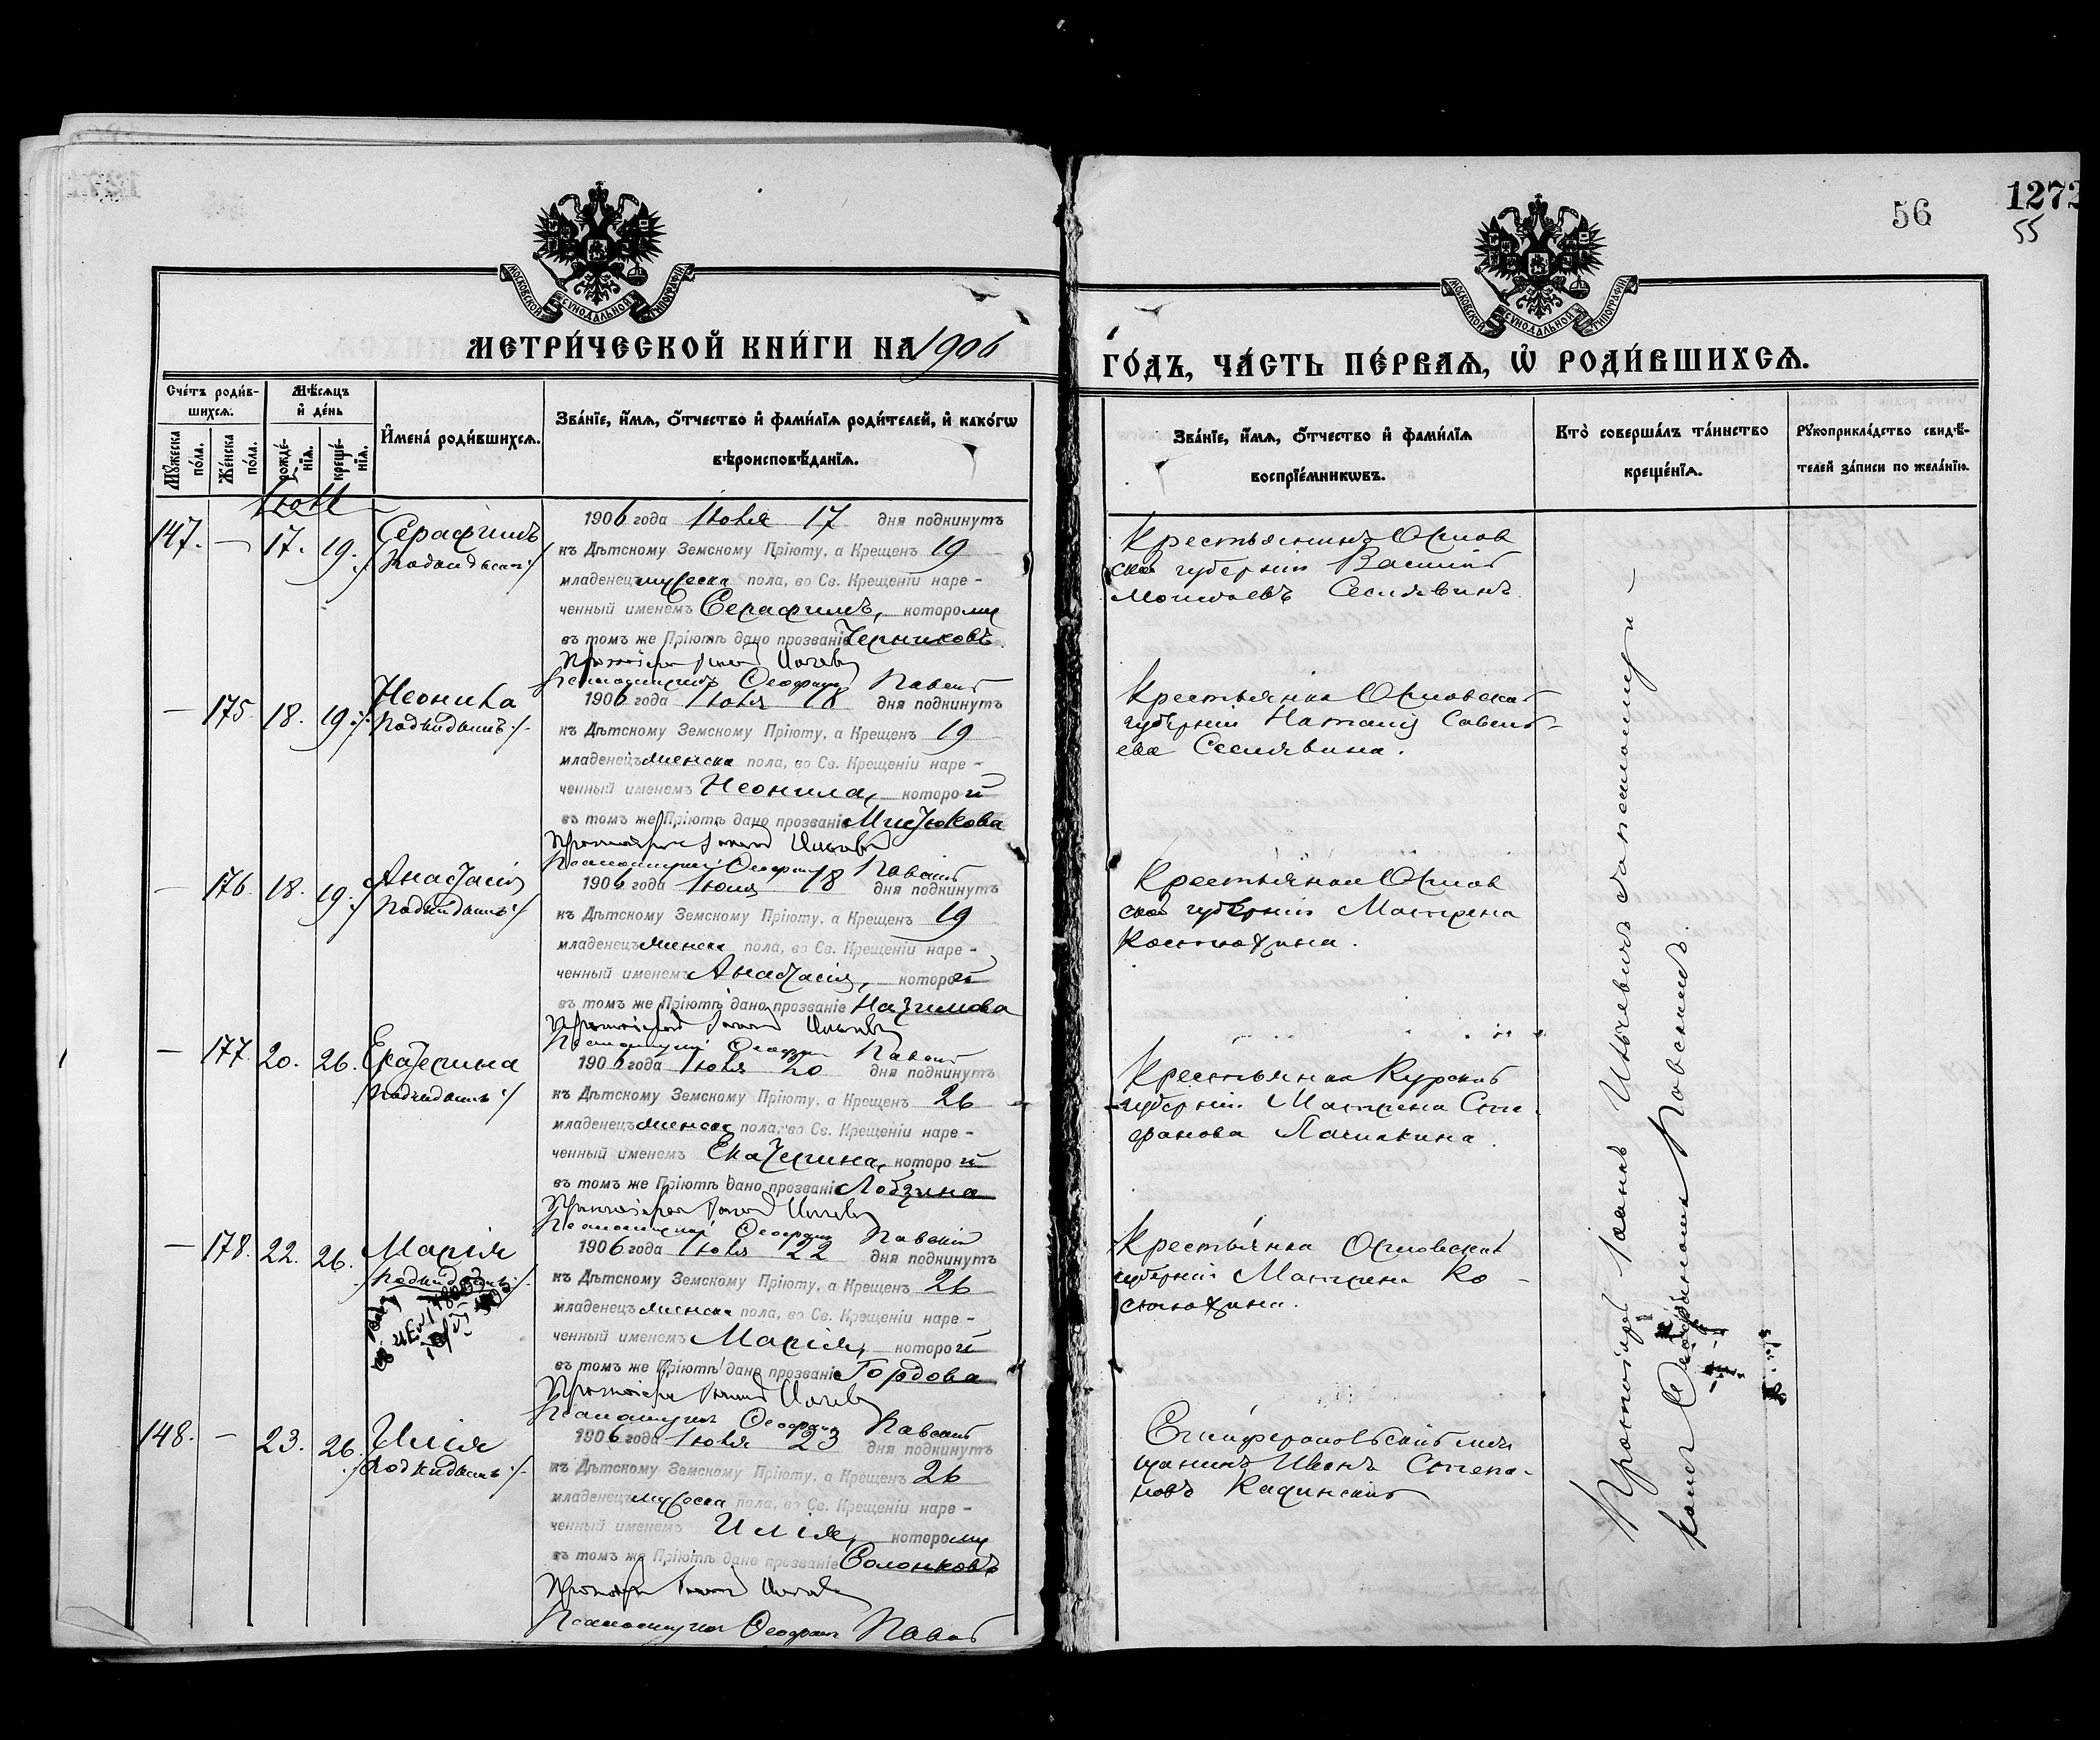 56
1272
55
МОСКОВСКОЙ СѴНОДАЛЬНОЙ ТИПОГРАФІИ
МОСКОВСКОЙ СѴНОДАЛЬНОЙ ТИПОГРАФІИ
МЕТРИ́ЧЕСКОЙ КНИ́ГИ НА 1906
ГО́ДЪ, ЧА́СТЬ ПЕ́РВАѦ, Ѽ РОДИ́ВШИХСѦ.
Сче́тъ роди́в-
шихсѧ.
Мꙋ́жеска по́ла.
Же́нска по́ла.
Мѣ́сѧцъ
и҆ де́нь
рожде́-
нїѧ.
креще́-
нїѧ.
И҆мена̀ роди́вшихсѧ.
Зва́нїе, и҆́мѧ, ѻ҆́тчество и҆ фами́лїѧ роди́телей, и҆ како́гѡ
вѣроисповѣ́данїѧ.
Зва́нїе, и҆́мѧ, ѻ҆́тчество и҆ фами́лїѧ
воспрїе́мникѡвъ.
Кто̀ соверша́лъ та́инство
креще́нїѧ.
Рꙋкоприкла́дство свидѣ́-
телей за́писи по жела́нїю.
Іюль
147. — 17. 19.
Серафимъ
/Подкидышъ/
1906 года Іюля 17 дня подкинутъ
къ Дѣтскому Земскому Пріюту, а Крещенъ 19
младенецъ мужеска пола, во Св. Крещеніи наре-
ченный именемъ Серафимъ, которому
въ томъ же Пріютѣ дано прозваніе Черниковъ.
Протоіерей Іоаннъ Ильичевъ
Псаломщикъ Ѳеофанъ Павскій
Крестьянинъ Орлов
ской губерніи Василій
Моисеевъ Сеславинъ.
— 175. 18. 19.
Неонила
/Подкидышъ/
1906 года Іюля 18 дня подкинутъ
къ Дѣтскому Земскому Пріюту, а Крещенъ 19
младенецъ женска пола, во Св. Крещеніи наре-
ченный именемъ Неонила, которой
въ томъ же Пріютѣ дано прозваніе Мизюкова
Протоіерей Іоаннъ Ильичевъ
Псаломщикъ Ѳеофанъ Павскій
Крестьянка Орловской
губерніи Наталія Савель-
ева Сеславина.
— 176. 18. 19.
Анастасія
/Подкидышъ/
1906 года Іюля 18 дня подкинутъ
къ Дѣтскому Земскому Пріюту, а Крещенъ 19
младенецъ женска пола, во Св. Крещеніи наре-
ченный именемъ Анастасія, которой
въ томъ же Пріютѣ дано прозваніе Назимова
Протоіерей Іоаннъ Ильичевъ
Псаломщикъ Ѳеофанъ Павскій
Крестьянка Орлов
ской губерніи Матрена
Костюхина.
— 177. 20. 26.
Екатерина
/Подкидышъ/
1906 года Іюля 20 дня подкинутъ
къ Дѣтскому Земскому Пріюту, а Крещенъ 26
младенецъ женска пола, во Св. Крещеніи наре-
ченный именемъ Екатерина, которой
въ томъ же Пріютѣ дано прозваніе Лобзина
Протоіерей Іоаннъ Ильичевъ
Псаломщикъ Ѳеофанъ Павскій
Крестьянка Курской
губерніи Матрена Сте-
фанова
— 178. 22. 26.
Марія
/Подкидышъ/
1906 года Іюля 22 дня подкинутъ
къ Дѣтскому Земскому Пріюту, а Крещенъ 26
младенецъ женска пола, во Св. Крещеніи наре-
ченный именемъ Марія, которой
въ томъ же Пріютѣ дано прозваніе Гордова
Протоіерей Іоаннъ Ильичевъ
Псаломщикъ Ѳеофанъ Павскій
Крестьянка Орловской
губерніи Матрена Ко-
стюхина.
148. — 23. 26.
Илія
/Подкидышъ/
1906 года Іюля 23 дня подкинутъ
къ Дѣтскому Земскому Пріюту, а Крещенъ 26
младенецъ мужеска пола, во Св. Крещеніи наре-
ченный именемъ Илія, которому
въ томъ же Пріютѣ дано прозваніе Солонковъ
Протоіерей Іоаннъ Ильичевъ
Псаломщикъ Ѳеофанъ Павскій
Симферопольскій мѣ
щанинъ Иванъ Степа-
новъ
Протоіерей Іоаннъ Ильичевъ съ псаломщи-
комъ Ѳеофаномъ Павскимъ.